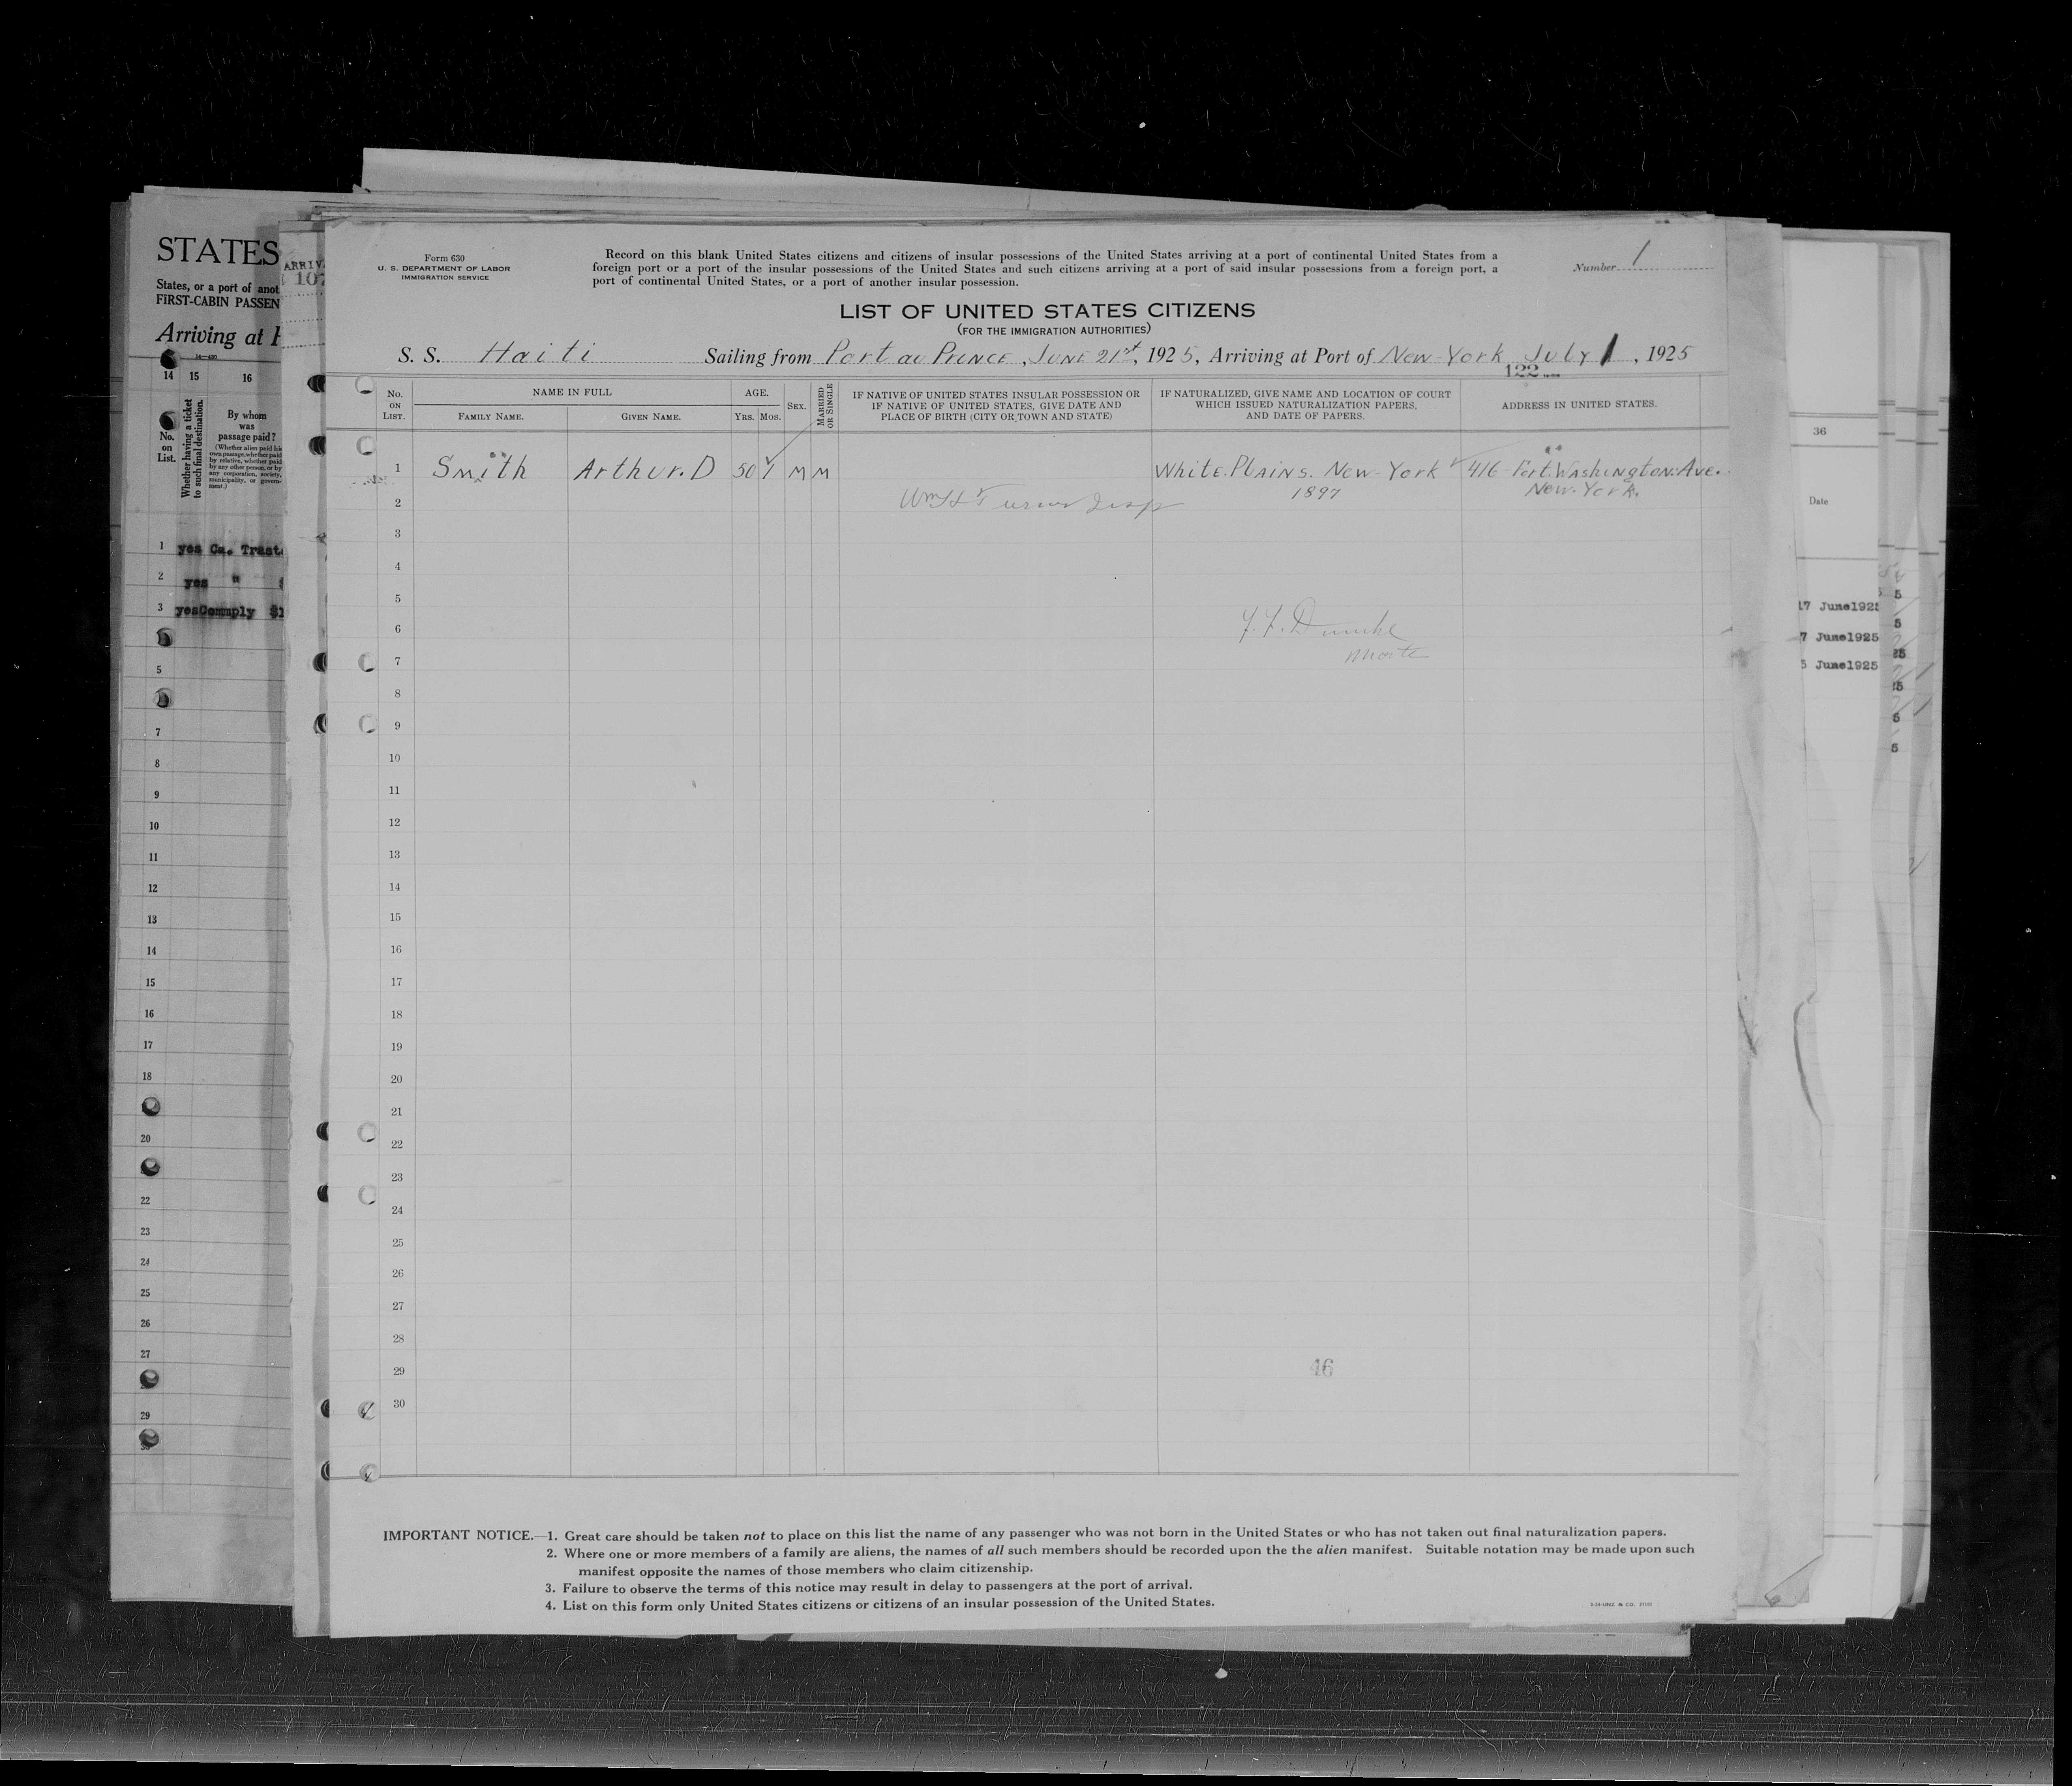 STATES
States, or a port of anot
FIRST-CABIN PASSEN
Arriving at
14—430
14 15 16
No. on List.
Whether having a ticket to such final destination.
By whom was passage paid?
(Whether alien paid his own passage, whether paid by relative, whether paid by any other person, or by any corporation, society, municipality, or government.)
1 yes Ca. Trast
2 yes "
3 yes Commply
5
7
8
9
10
11
12
13
14
15
16
17
18
20
22
23
24
25
26
27
29
ARRIV
107
Form 630
U. S. DEPARTMENT OF LABOR
IMMIGRATION SERVICE
Record on this blank United States citizens and citizens of insular possessions of the United States arriving at a port of continental United States from a
foreign port or a port of the insular possessions of the United States and such citizens arriving at a port of said insular possessions from a foreign port, a
port of continental United States, or a port of another insular possession.
Number 1
LIST OF UNITED STATES CITIZENS
(FOR THE IMMIGRATION AUTHORITIES)
S. S. Haiti Sailing from Port au Prince, June 21st, 1925, Arriving at Port of New-York July 1, 1925
122
No. ON LIST.
NAME IN FULL
FAMILY NAME. GIVEN NAME.
AGE.
YRS. MOS.
SEX.
MARRIED OR SINGLE
IF NATIVE OF UNITED STATES INSULAR POSSESSION OR
IF NATIVE OF UNITED STATES, GIVE DATE AND
PLACE OF BIRTH (CITY OR TOWN AND STATE)
IF NATURALIZED, GIVE NAME AND LOCATION OF COURT
WHICH ISSUED NATURALIZATION PAPERS,
AND DATE OF PAPERS.
ADDRESS IN UNITED STATES.
1 Smith Arthur. D 50 1 M M White. Plains. New-York 416 Fort. Washington. Ave.
1897 New-York.
2 Wm H Turner Insp
3
4
5
6
7
8
9
10
11
12
13
14
15
16
17
18
19
20
21
22
23
24
25
26
27
28
29
46
30
IMPORTANT NOTICE.—1. Great care should be taken not to place on this list the name of any passenger who was not born in the United States or who has not taken out final naturalization papers.
2. Where one or more members of a family are aliens, the names of all such members should be recorded upon the the alien manifest. Suitable notation may be made upon such
manifest opposite the names of those members who claim citizenship.
3. Failure to observe the terms of this notice may result in delay to passengers at the port of arrival.
4. List on this form only United States citizens or citizens of an insular possession of the United States.
36
Date
17 June192
7 June1925
5 June1925